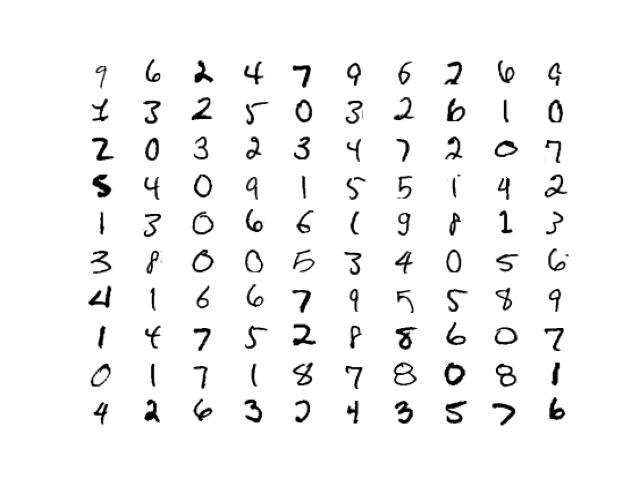 9 6 2 4 7 9 6 2 6 9
1 3 2 5 0 3 2 6 1 0
2 0 3 2 3 4 7 2 0 7
5 4 0 9 1 5 5 1 4 2
1 3 0 6 6 1 9 8 1 3
3 8 0 0 5 3 4 0 5 6
4 1 6 6 7 9 5 5 8 9
1 4 7 5 2 8 8 6 0 7
0 1 7 1 8 7 8 0 8 1
4 2 6 3 2 4 3 5 7 6